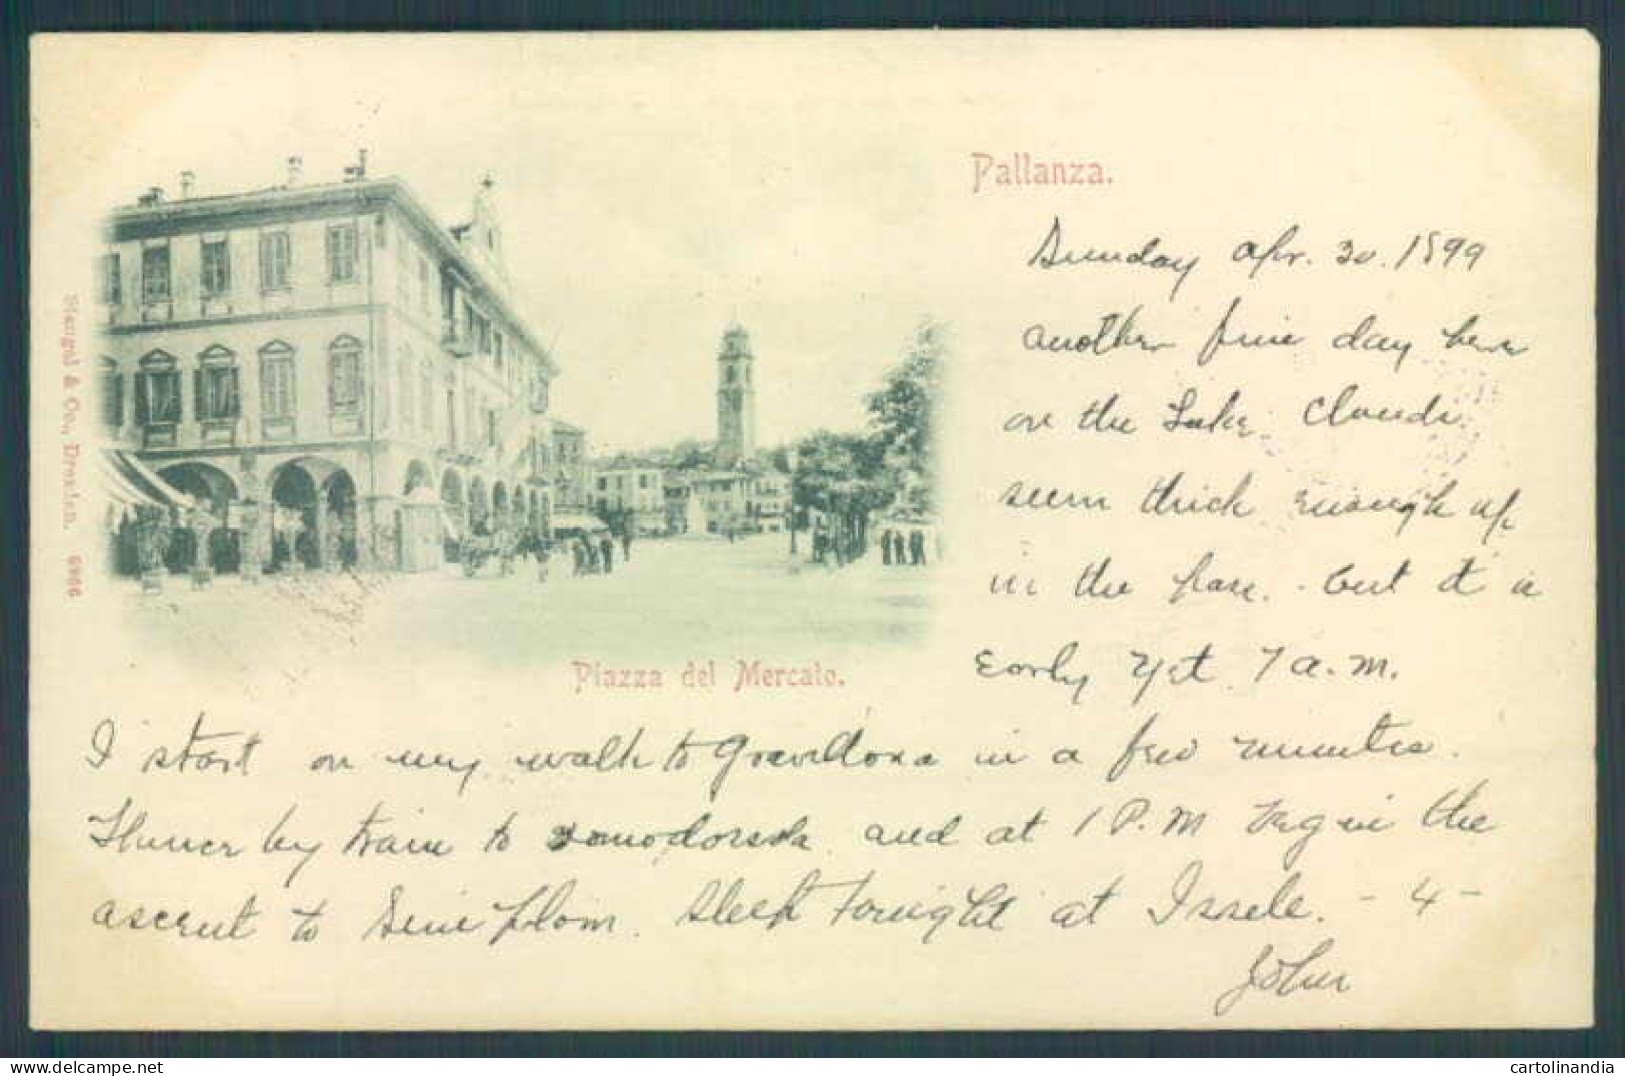 Pallanza.
Sunday Apr. 30. 1899
another fine day here
on the Lake. Clouds
seem thick enough up
in the pass. but it is
Early yet. 7 a.m.
Piazza del Mercato.
Stengel & Co., Dresden. 6966
I start on my walk to Gravellona in a few minutes.
Thence by train to Domodossola and at 1 P.M begin the
ascent to Simplon. Sleep tonight at Isselle. - 4 -
John
cartolinandia